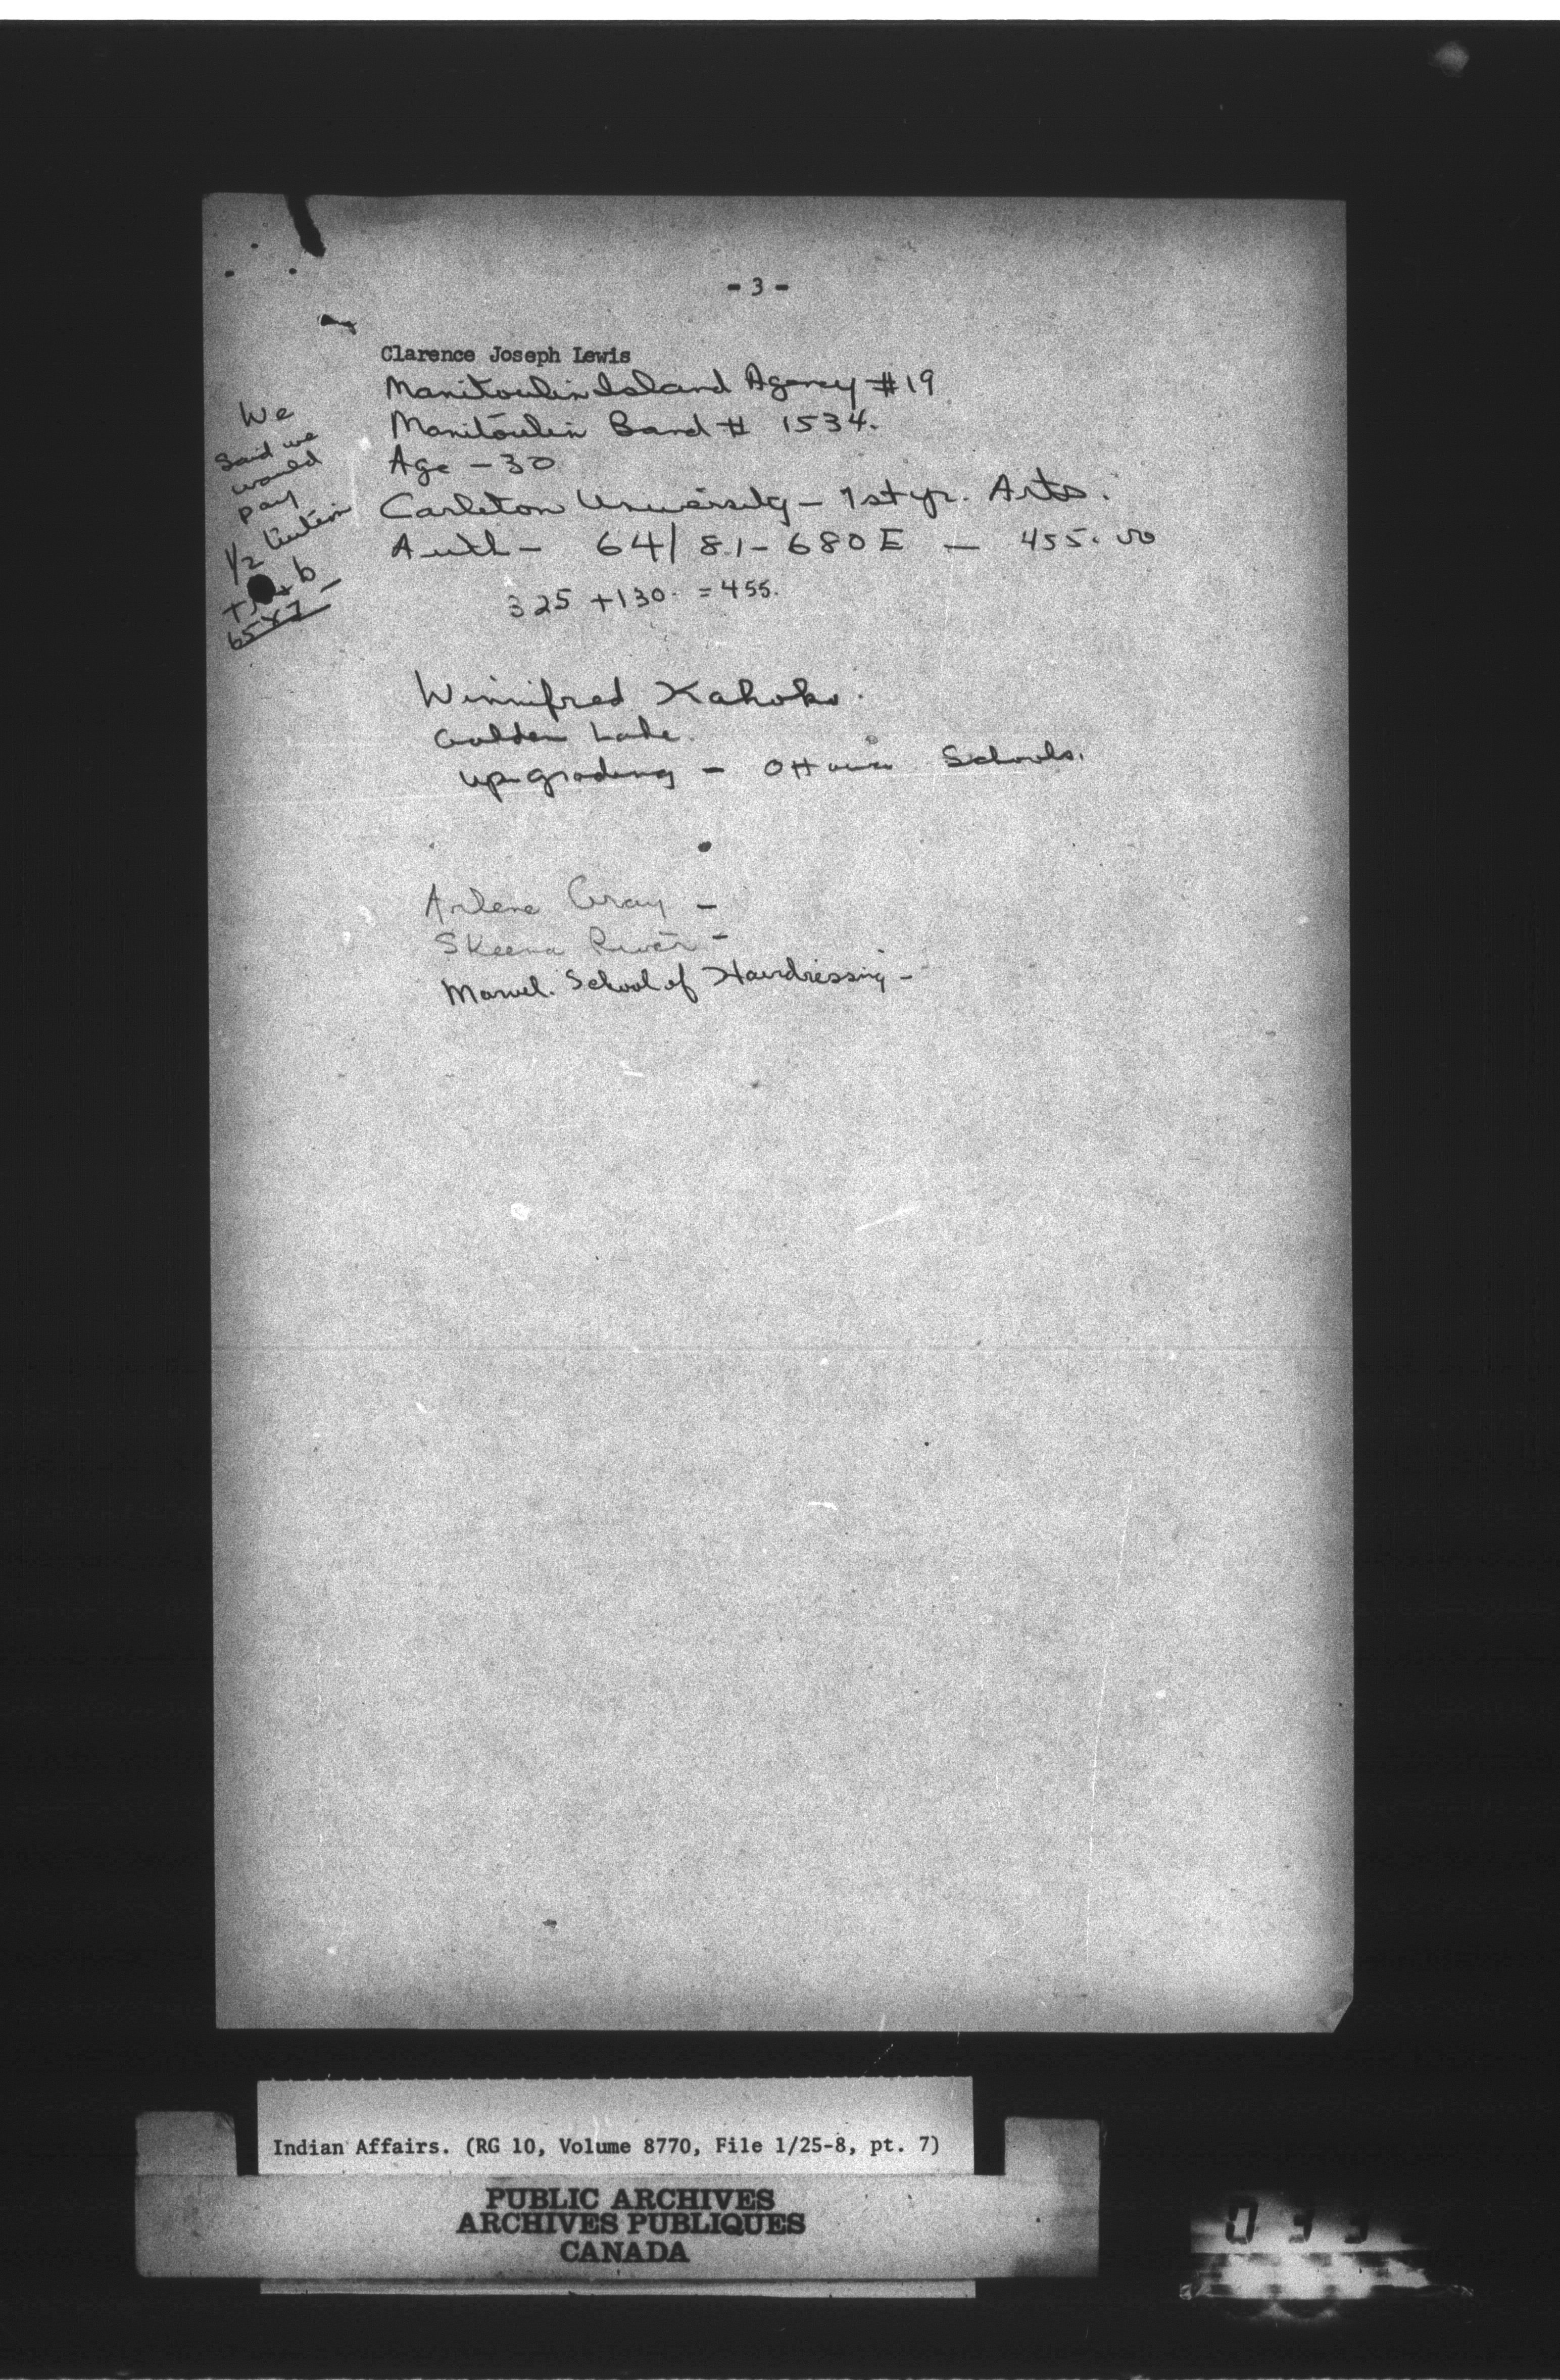 - 3 -
Clarence Joseph Lewis
Manitoulin Island Agency #19
Manitoulin Band # 1534.
Age - 30
Carleton University - 1st yr. Arts.
Auth - 64/81-680E - 455.00
325 + 130. = 455.
We
said we
would
pay
1/2 tuition
+ b
Winnifred
Golden Lake.
upgrading - Ottawa Schools.
Arlene Gray -
Skeena River -
Marvel. School of Hairdressing -
Indian Affairs. (RG 10, Volume 8770, File 1/25-8, pt. 7)
PUBLIC ARCHIVES
ARCHIVES PUBLIQUES
CANADA